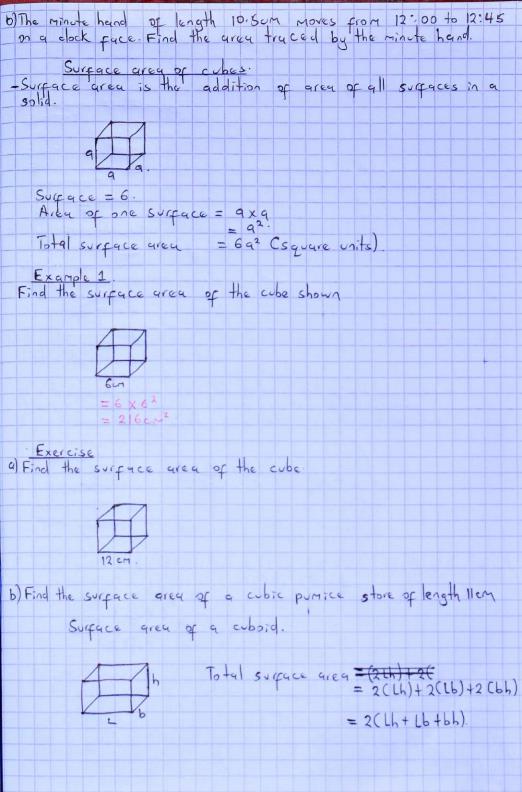 b) The minute hand of length 10.5cm moves from 12:00 to 12:45
on a clock face. Find the area traced by the minute hand.
Surface area of cubes.
- Surface area is the addition of area of all surfaces in a
solid.
a
a
a.
Surface = 6.
Area of one surface = a x a
= a².
Total surface area = 6a² (square units)
Example 1
Find the surface area of the cube shown
6cm
= 6 x 6²
= 216cm²
Exercise
a) Find the surface area of the cube
12 cm.
b) Find the surface area of a cubic pumice stone of length 11cm
Surface area of a cuboid.
h
b
L
Total surface area = (2Lh) + 2(
= 2(Lh) + 2(Lb) + 2(bh)
= 2(Lh + Lb + bh)